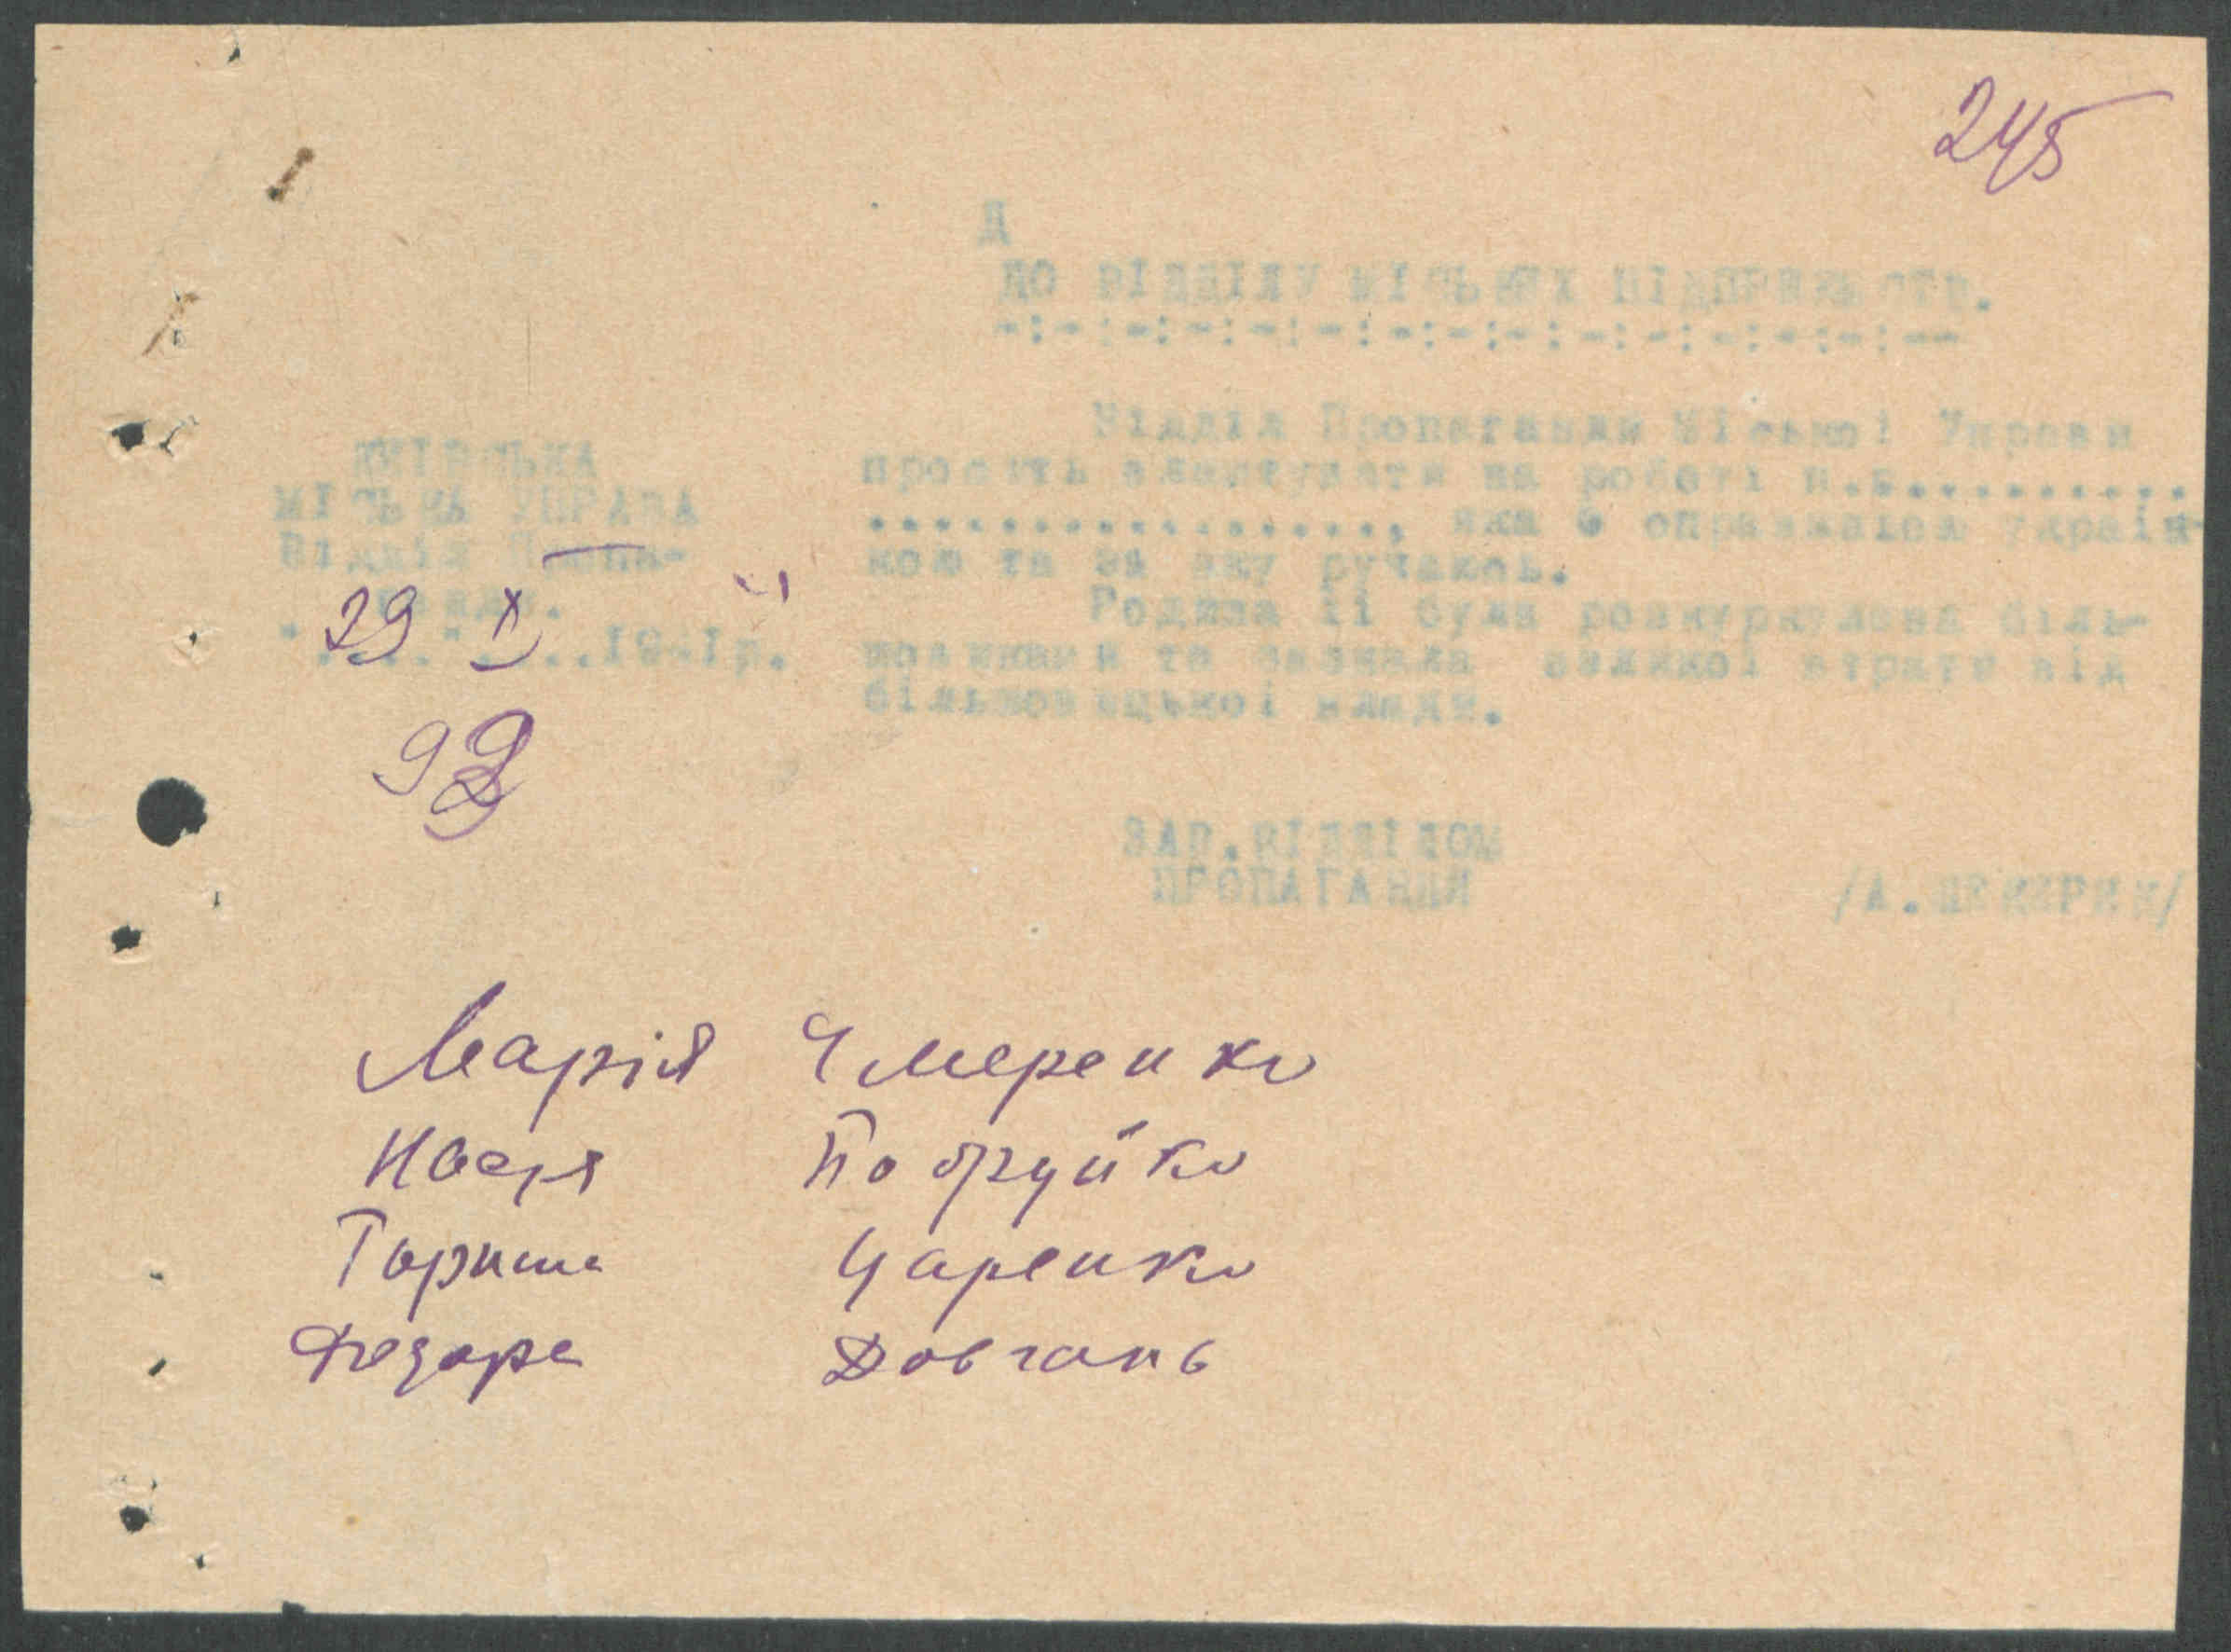 245
Д
ДО ВІДДІЛУ МІСЬКИХ ПІДПРИЄМСТВ.
-:-:-:-:-:-:-:-:-:-:-:-:-:-:--
КИЇВСЬКА
МІСЬКА УПРАВА
Відділ Пропа-
ганди.
"....."......1941р.
29 X 41
92
Відділ Пропаганди Міської Управи
просить влаштувати на роботі н.б..........
.................., яка є справжньою україн-
кою та за яку ручаюсь.
Родина її була розкуркулена біль-
шовиками та зазнала великої втрати від
більшовицької влади.
ЗАВ.ВІДДІЛОМ
ПРОПАГАНДИ
/А.
Марія Чмеренко
Настя
Царенко
Федора Довгань